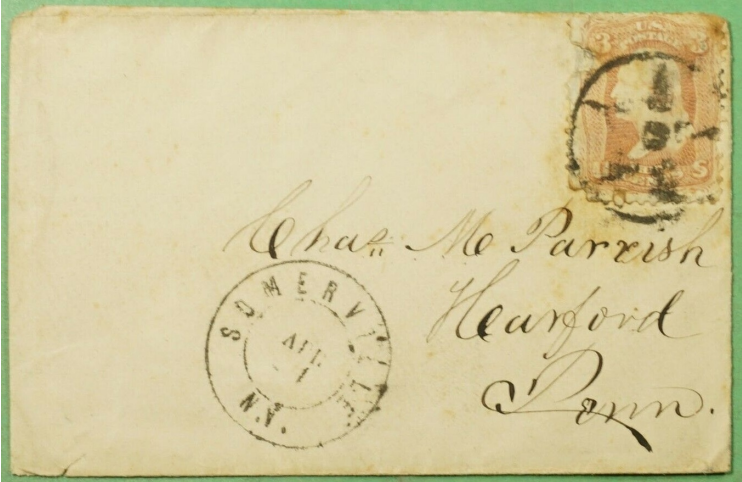 3 U.S. 3
POSTAGE
S
Chas. M Parrish
Hearford
Penn.
SOMERVILLE
APR
1